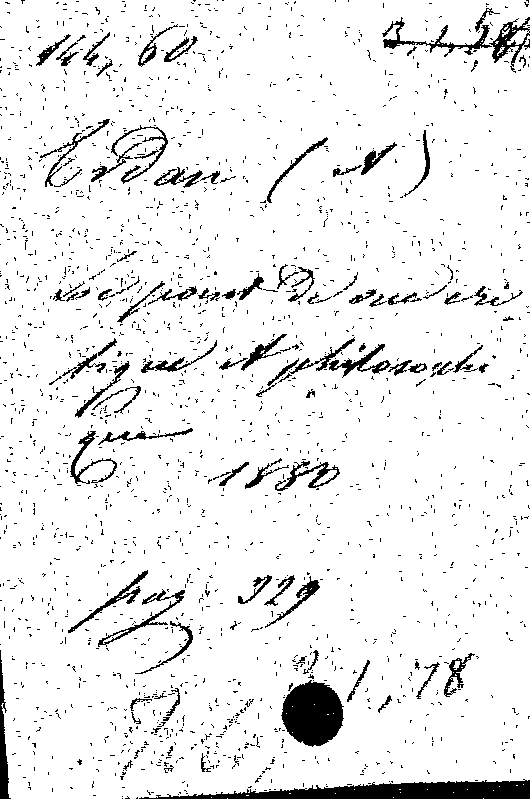 144, 60
3, 1, 58
Erdan (A)
Le point de vue cri
tique et philosophi
que
1880
pag 329
3, 1, 78